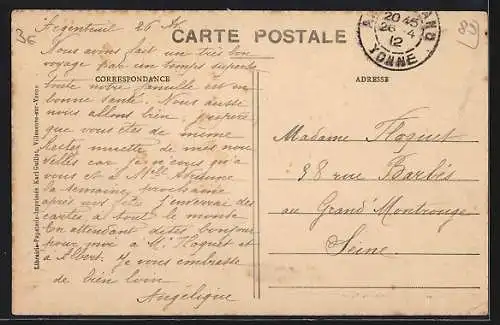 36
CARTE POSTALE
20 45
26-4
12
YONNE
CORRESPONDANCE
ADRESSE
Argenteuil 26
Nous avons fait un très bon
voyage par un temps superbe
toute notre famille est en
bonne santé. Nous aussi
nous allons bien, j'espère
que vous êtes de même
muette de mes nou
velles car je n'écris qu'à
vous et à Mlle
la semaine prochaine
après nos fêtes j'enverrai des
cartes à tout le monde
En attendant dites bonjour
pour moi à Mr Floquet et
à Albert. Je vous embrasse
de bien loin
Angélique
Madame Floquet
98 rue Barbès
au Grand Montrouge
Seine
Librairie-Papeterie-Imprimerie Karl Guillot, Villeneuve-sur-Yonne